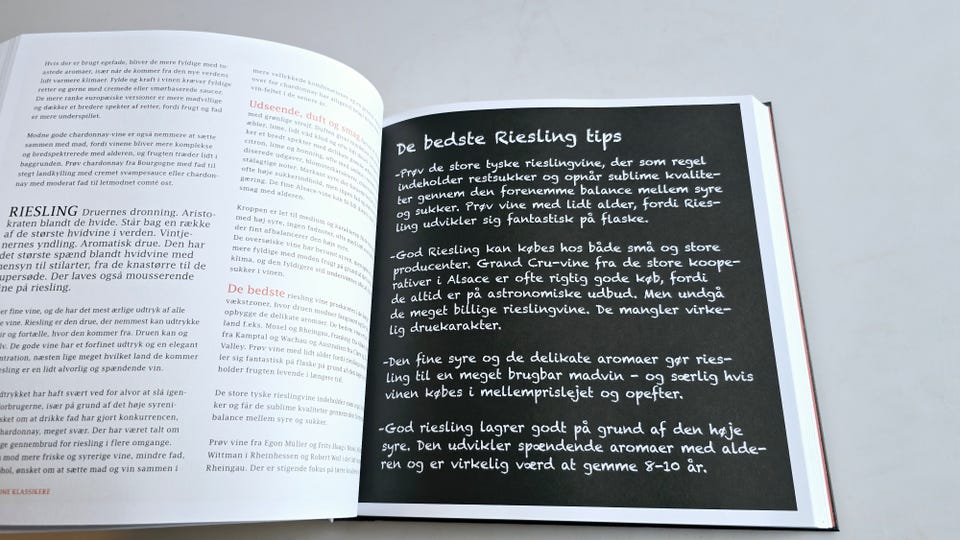 Hvis der er brugt egefade, bliver de mere fyldige med to-
astede aromaer, især når de kommer fra den nye verdens
lidt varmere klimaer. Fylde og kraft i vinen kræver fyldige
retter og gerne med cremede eller smørbaserede saucer.
De mere ranke europæiske versioner er mere madvillige
og dækker et bredere spekter af retter, fordi frugt og fad
er mere underspillet.
Modne gode chardonnay-vine er også nemmere at sætte
sammen med mad, fordi vinene bliver mere komplekse
og bredspektrerede med alderen, og frugten træder lidt i
baggrunden. Prøv chardonnay fra Bourgogne med fad til
stegt landkylling med cremet svampesauce eller chardon-
nay med moderat fad til letmodnet comté ost.
RIESLING Druernes dronning. Aristo-
kraten blandt de hvide. Står bag en række
af de største hvidvine i verden. Vintje-
nernes yndling. Aromatisk drue. Den har
det største spænd blandt hvidvine med
hensyn til stilarter, fra de knastørre til de
supersøde. Der laves også mousserende
vine på riesling.
er fine vine, og de har det mest ærlige udtryk af alle
vine. Riesling er den drue, der nemmest kan udtrykke
ir og fortælle, hvor den kommer fra. Druen kan og
lv. De gode vine har et forfinet udtryk og en elegant
ntration, næsten lige meget hvilket land de kommer
esling er en lidt alvorlig og spændende vin.
dtrykket har haft svært ved for alvor at slå igen-
forbrugerne, især på grund af det høje syreni-
sket om at drikke fad har gjort konkurrencen,
hardonnay, meget svær. Der har været talt om
ge gennembrud for riesling i flere omgange.
mod mere friske og syrerige vine, mindre fad,
ohol, ønsket om at sætte mad og vin sammen i
NE KLASSIKERE
mere vellykkede kombinationer
over for chardonnay har
vin-feltet i de senere år.
Udseende, duft og smag
med grønlige strejf. Duften
æbler, lime, lidt våd
citron, lime og honning,
Kroppen er let til medium
med høj syre, ingen fadnoter, ofte
der fint afbalancerer den høje syre.
De oversøiske vine har
mere fyldige med moden frugt på grund af
klima, og den fyldigere stil understøttes
sukker i vinen.
De bedste riesling vine
vækstzoner, hvor druen modner langsomt
opbygge de delikate aromaer. De bedste
land f.eks. Mosel og Rheingau,
fra Kamptal og Wachau og Australien fra
Valley. Prøv vine med lidt alder fordi riesling
ler sig fantastisk på flaske på grund af
holder frugten levende i længere tid.
De store tyske rieslingvine indeholder som regel
ker og får de sublime kvaliteter gennem
balance mellem syre og sukker.
Prøv vine fra Egon Müller og Fritz Haag i Mosel,
Wittman i Rheinhessen og Robert Weil i
Rheingau. Der er stigende fokus på tørre
De bedste Riesling tips
-Prøv de store tyske rieslingvine, der som regel
indeholder restsukker og opnår sublime kvalite-
ter gennem den forenemme balance mellem syre
og sukker. Prøv vine med lidt alder, fordi Ries-
ling udvikler sig fantastisk på flaske.
-God Riesling kan købes hos både små og store
producenter. Grand Cru-vine fra de store koope-
rativer i Alsace er ofte rigtig gode køb, fordi
de altid er på astronomiske udbud. Men undgå
de meget billige rieslingvine. De mangler virke-
lig druekarakter.
-Den fine syre og de delikate aromaer gør ries-
ling til en meget brugbar madvin - og særlig hvis
vinen købes i mellemprislejet og opefter.
-God riesling lagrer godt på grund af den høje
syre. Den udvikler spændende aromaer med alde-
ren og er virkelig værd at gemme 8-10 år.